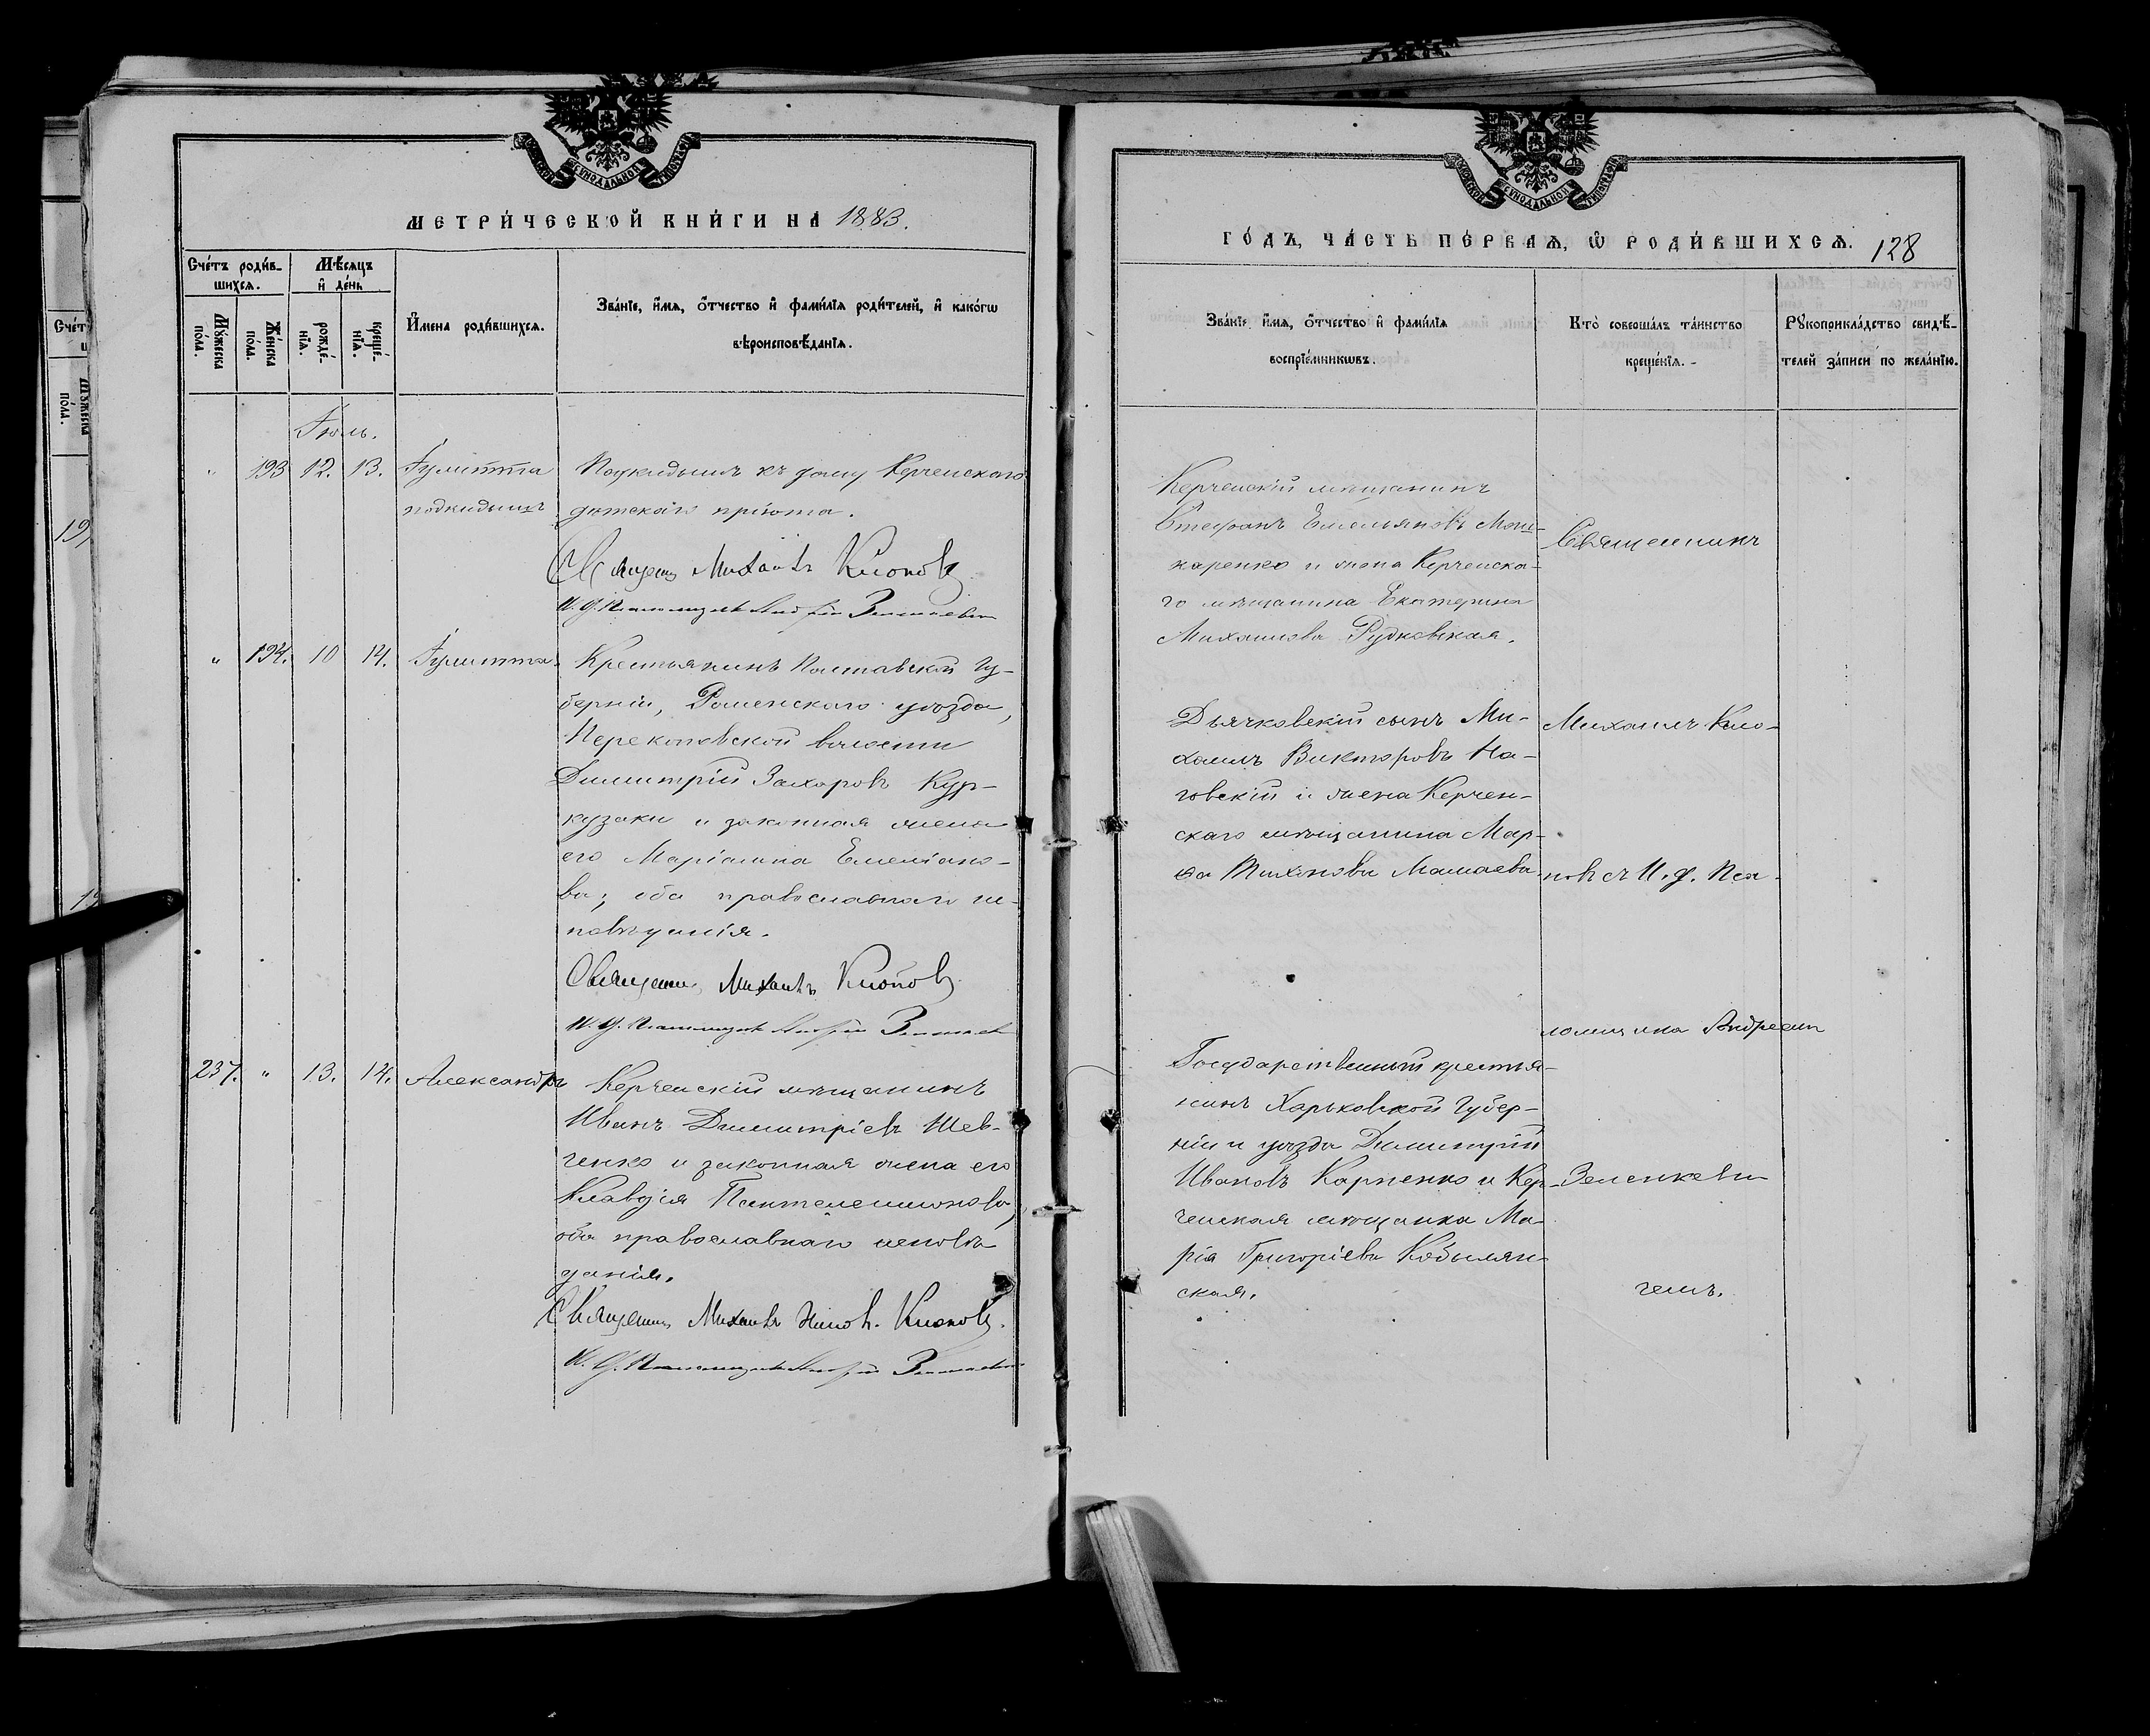 МОСКОВСКОЙ СѴНОДАЛЬНОЙ ТИПОГРАФІИ
МЕТРИ́ЧЕСКОЙ КНИ́ГИ НА 1883.
Сче́тъ роди́в-
шихсѧ.
Мѣ́сѧцъ
и҆ де́нь
Мꙋ́жеска
по́ла.
Же́нска
по́ла.
рожде́-
нїѧ.
креще́-
нїѧ.
И҆мена̀ роди́вшихсѧ.
Зва́нїе, и҆́мѧ, ѻ҆́тчество и҆ фами́лїѧ роди́телей, и҆ како́гѡ
вѣроисповѣ́данїѧ.
Іюль.
" 193 12. 13. Іулитта Подкидышъ къ дому Керченскаго
подкидышъ дѣтскаго пріюта.
Священ. Михаилъ Клоповъ
И. д. Псаломщика Андрей
" 194. 10 14. Іулитта. Крестьянинъ Полтавской гу-
берніи, Роменскаго уѣзда,
Перекоповской волости
Димитрій Захаровъ Кур-
кузаки и законная жена
его Маріанна Емеліано-
ва; оба православнаго ис-
повѣданія.
Священн. Михаилъ Клоповъ
И. д. Псаломщика Андрей
237. " 13. 14. Александръ Керченскій мѣщанинъ
Иванъ Димитріевъ Шев-
ченко и законная жена его
Клавдія Пантелеимонова,
оба православнаго исповѣ-
данія.
Священн. Михаилъ Клоповъ.
И. д. Псаломщика Андрей
МОСКОВСКОЙ СѴНОДАЛЬНОЙ ТИПОГРАФІИ
ГО́ДЪ, ЧА́СТЬ ПЕ́РВАѦ, Ѡ҆ РОДИ́ВШИХСѦ. 128
Зва́нїе, и҆́мѧ, ѻ҆́тчество и҆ фами́лїѧ
воспрїе́мникѡвъ.
Кто̀ соверша́лъ та́инство
креще́нїѧ.
Рꙋкоприкла́дство свидѣ́-
телей за́писи по жела́нїю.
Керченскій мѣщанинъ
Стефанъ Емельяновъ Мош-
каренко и жена Керченска-
го мѣщанина Екатерина
Михаилова Рудковская.
Священникъ
Дьячковскій сынъ Ми-
хаилъ Викторовъ На-
говскій и жена Керчен-
скаго мѣщанина Мар-
ѳа Тихонова Мамаева
Михаилъ Кло-
повъ съ И. д. Пса-
ломщика Андреемъ
Государственный крестья-
нинъ Харьковской губер-
ніи и уѣзда Димитрій
Ивановъ Карпенко и Кер-
ченская мѣщанка Ма-
рія Григоріева Кобылян-
ская.
Зеленкеви-
чемъ.